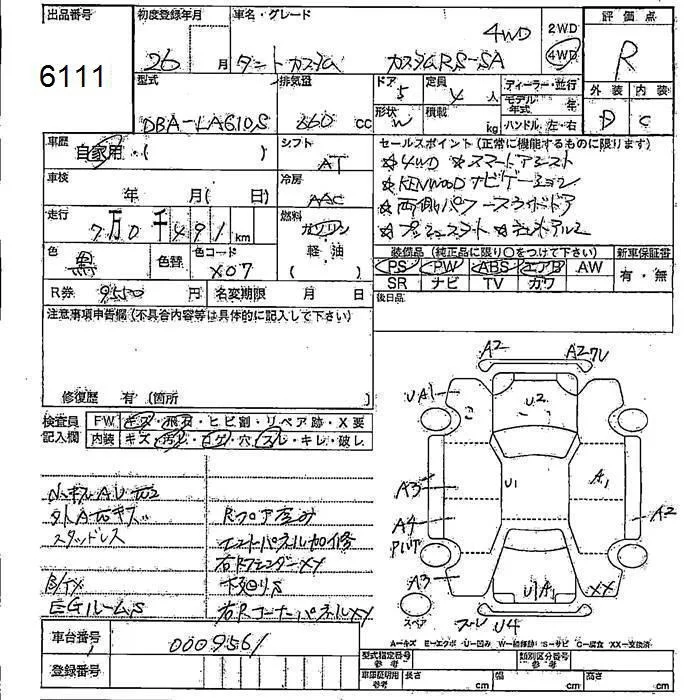 出品番号
6111
初度登録年月
26 月
車名・グレード
タント カスタム カスタムRS-SA
4WD
2WD
4WD
評価点
R
外装 内装
D C
型式
DBA-LA610S
排気量
660 cc
ドア
5
形状
W
定員
4 人
積載
kg
ディーラー・並行
モデル年式 年
ハンドル 左・右
車歴
自家用 ( )
シフト
AT
車検
年 月( 日)
冷房
AAC
走行
7万0千491 km
燃料
ガソリン
軽油
( )
色
黒
色替
色コード
X07
R券 9550 円
名変期限 月 日
セールスポイント(正常に機能するものに限ります)
☆4WD ☆スマートアシスト
☆KENWOODナビゲーション
☆両側パワースライドドア
☆プッシュスタート ☆純正アルミ
装備品(純正品に限り○をつけて下さい)
PS PW ABS エアB AW
SR ナビ TV カワ
新車保証書
有・無
後日品
注意事項申告欄(不具合内容等は具体的に記入して下さい)
修復歴 有 (箇所
検査員記入欄
FW キズ・飛石・ヒビ割・リペア跡・X要
内装 キズ・汚レ・コゲ・穴・スレ・キレ・破レ
スタッドレス
Rフロア歪み
エンドパネル加修
右RフェンダーXX
下回りS
EGルームS
右RコーナーパネルXX
A2
A2
UA1
U2
A3
U1
A1
A2
A4
A3
UA1
XX
スペア
U4
A=キズ E=エクボ U=凹み W=補修跡 S=サビ C=腐食 XX=交換済
車台番号
0009561
登録番号
型式指定番号 参考
類別区分番号 参考
車庫証明用 参考
長さ cm
幅 cm
高さ cm